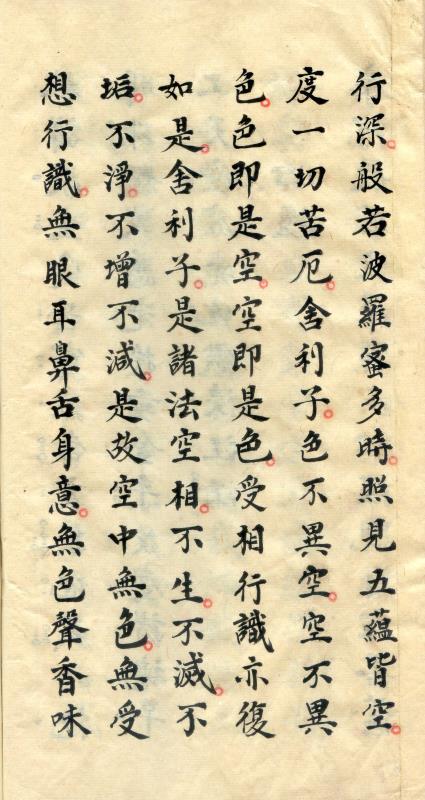 行深。般若波羅蜜多時。照見五蘊皆空。
度一切苦厄。舍利子。色不異空。空不異
色。色即是空。空即是色。受相行識亦復
如是。舍利子。是諸法空相。不生。不滅。不
垢。不淨。不增不減。是故空中無色。無受
想行識。無眼耳鼻舌身意。無色聲香味